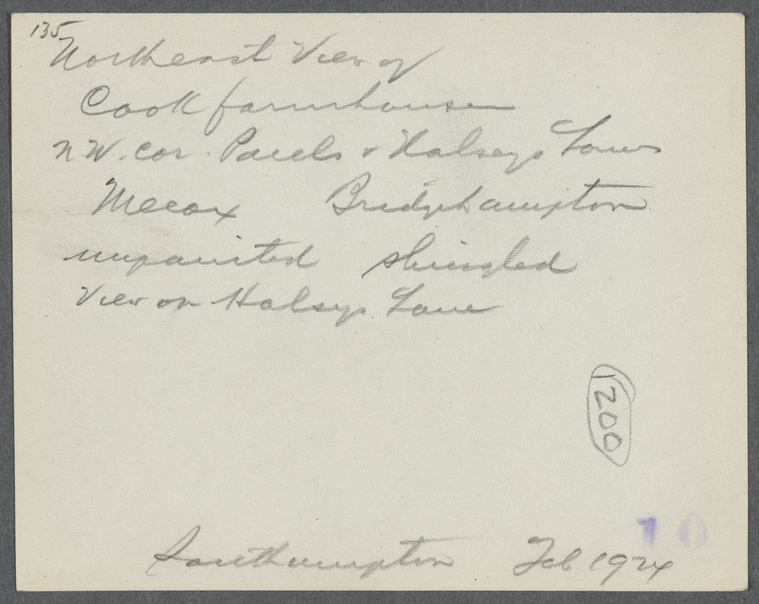 135
Northeast View of
Cook farmhouse
N.W. cor. Pauls & Halseys Lanes
Mecox Bridgehampton
unpainted shingled
View on Halseys Lane
1200
10
Southampton Feb 1924